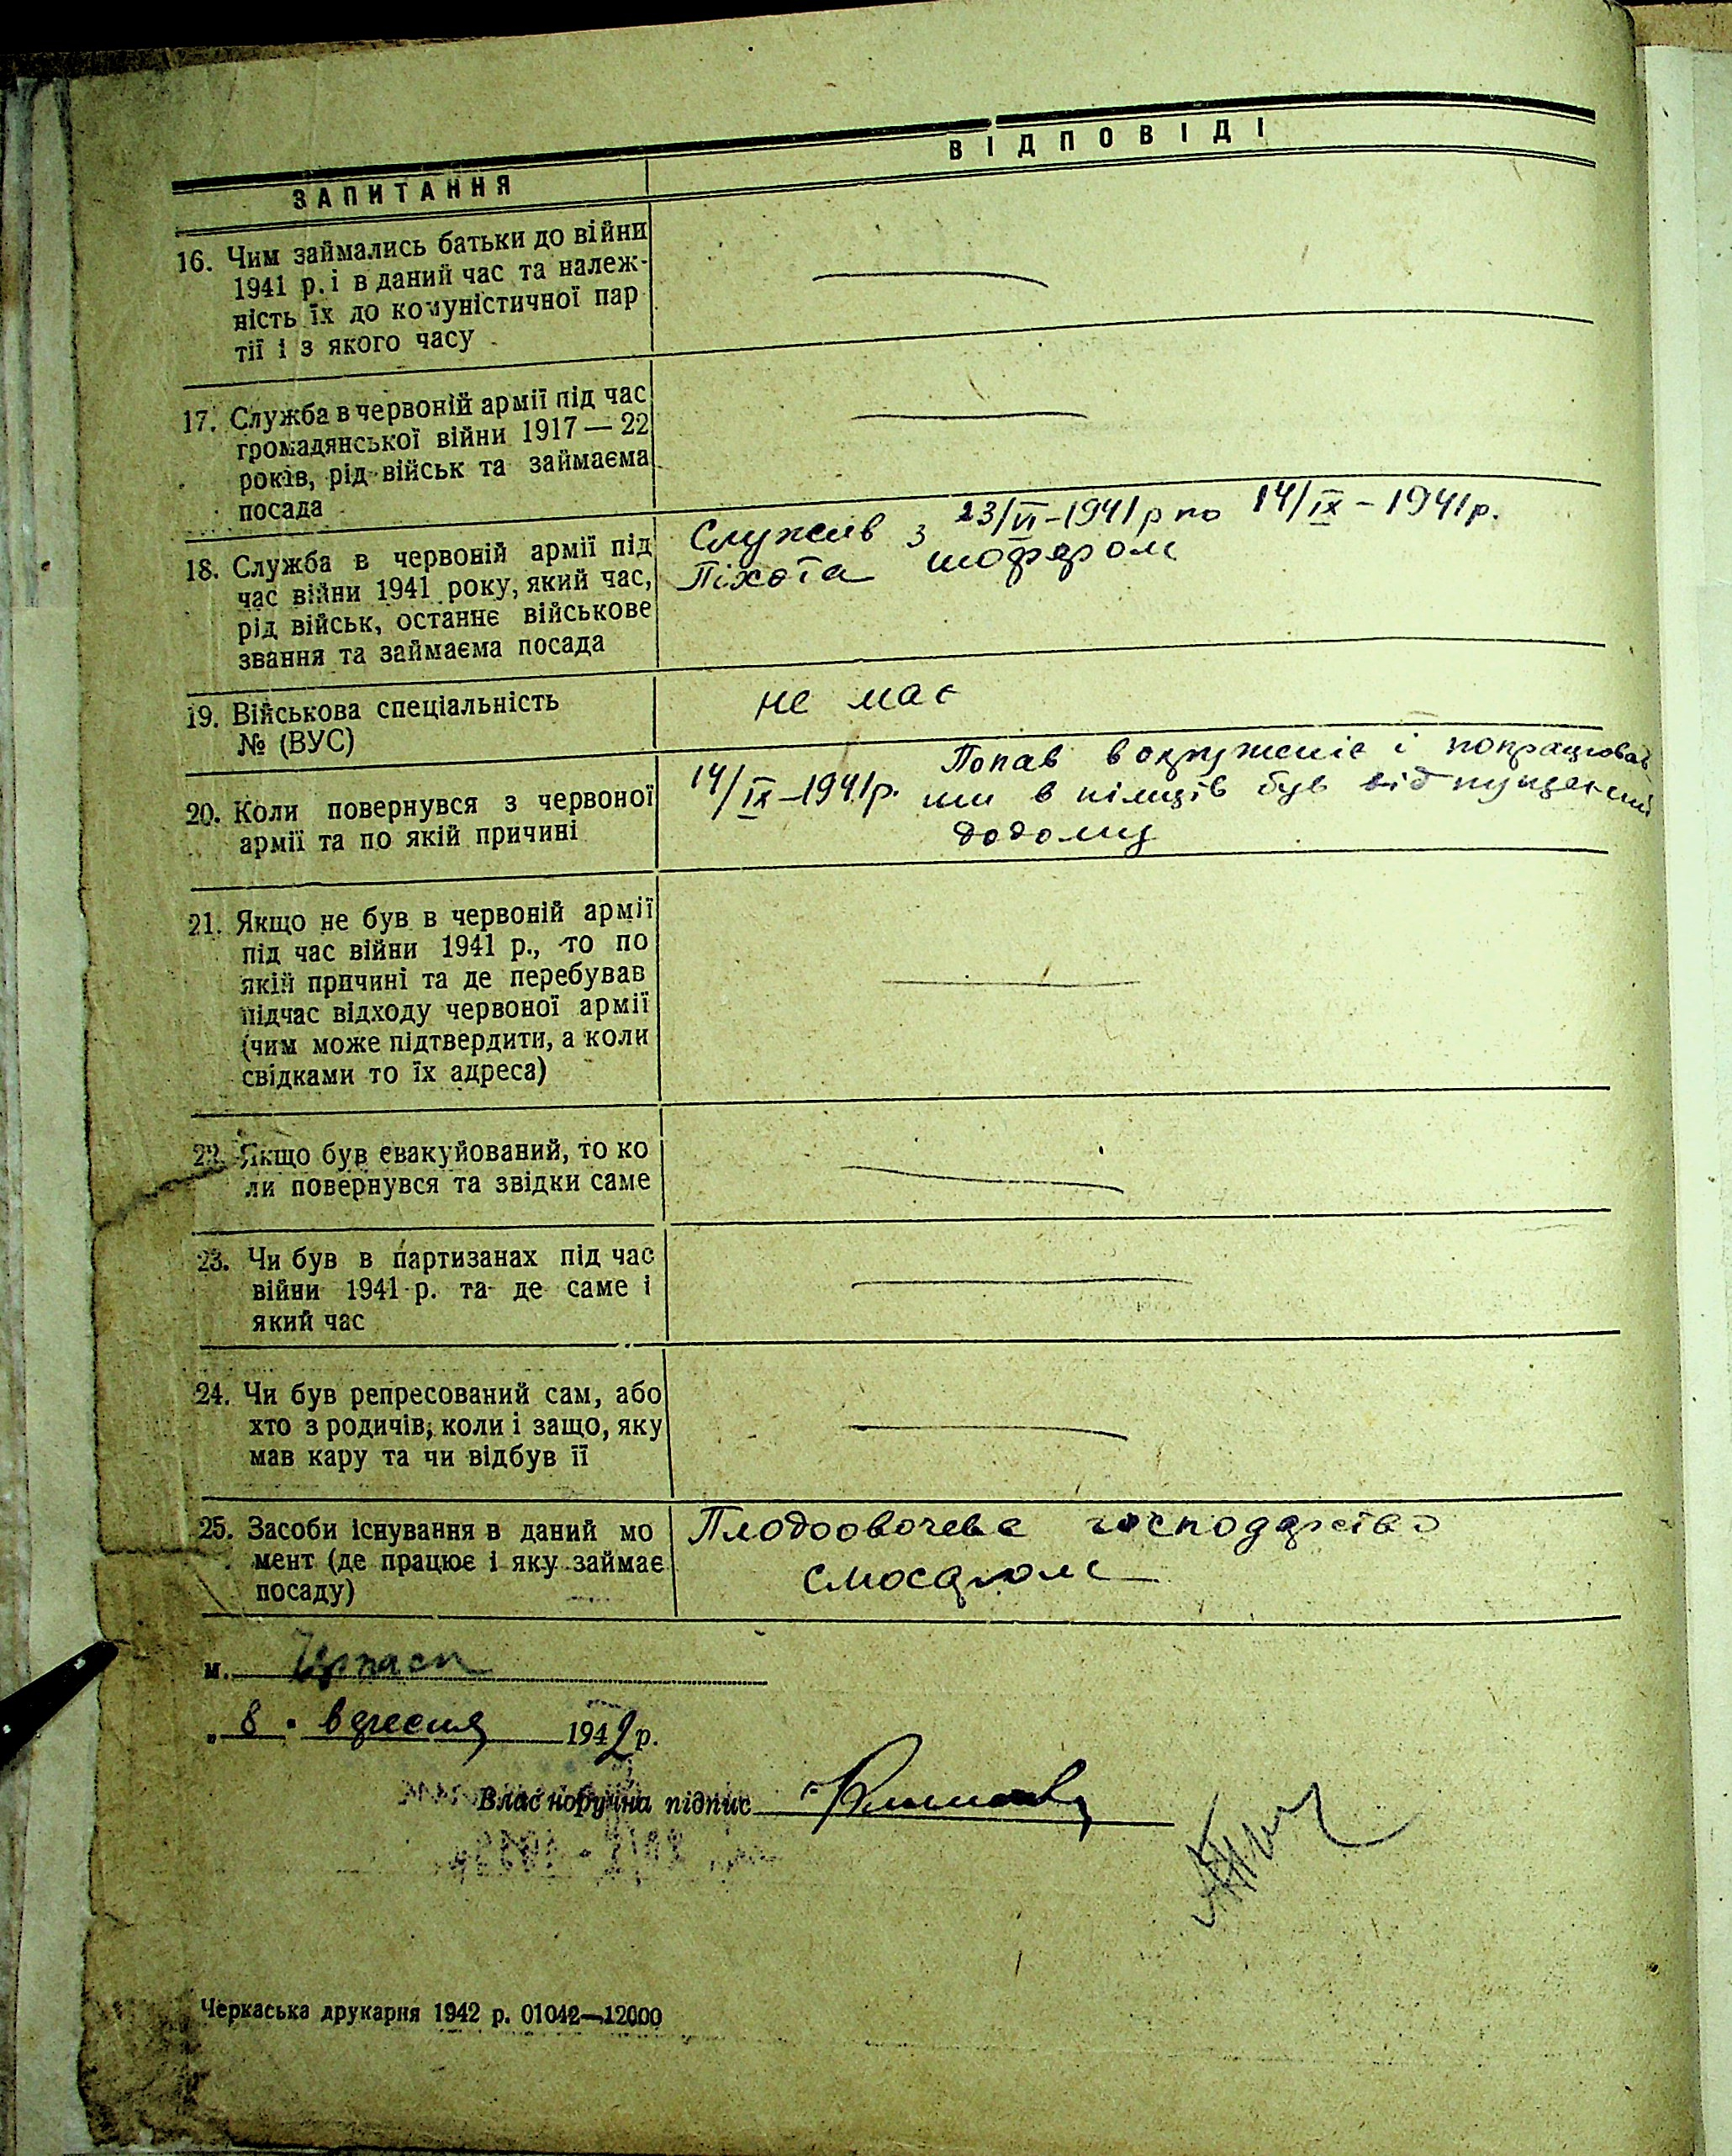 ВІДПОВІДІ
ЗАПИТАННЯ
16. Чим займались батьки до війни
1941 р. і в даний час та належ-
ність їх до комуністичної пар
тії і з якого часу
17. Служба в червоній армії під час
громадянської війни 1917 — 22
років, рід військ та займаєма
посада
18. Служба в червоній армії під
час війни 1941 року, який час,
рід військ, останнє військове
звання та займаєма посада
Служив з 23/VI-1941 р по 14/IX-1941р.
Піхота шофером
19. Військова спеціальність
№ (ВУС)
не має
20. Коли повернувся з червоної
армії та по якій причині
14/IX-1941р. Попав в окруженіє і попрацював
ши в німців був відпущений
додому
21. Якщо не був в червоній армії
під час війни 1941 р., то по
якій причині та де перебував
підчас відходу червоної армії
(чим може підтвердити, а коли
свідками то їх адреса)
22. Якщо був євакуйований, то ко
ли повернувся та звідки саме
23. Чи був в партизанах під час
війни 1941 р. та де саме і
який час
24. Чи був репресований сам, або
хто з родичів, коли і защо, яку
мав кару та чи відбув її
25. Засоби існування в даний мо
мент (де працює і яку займає
посаду)
Плодоовочеве господарство
м. Черкаси
„ 8 " вересня 1942 р.
Власноручна підпис
Черкаська друкарня 1942 р. 01042—12000